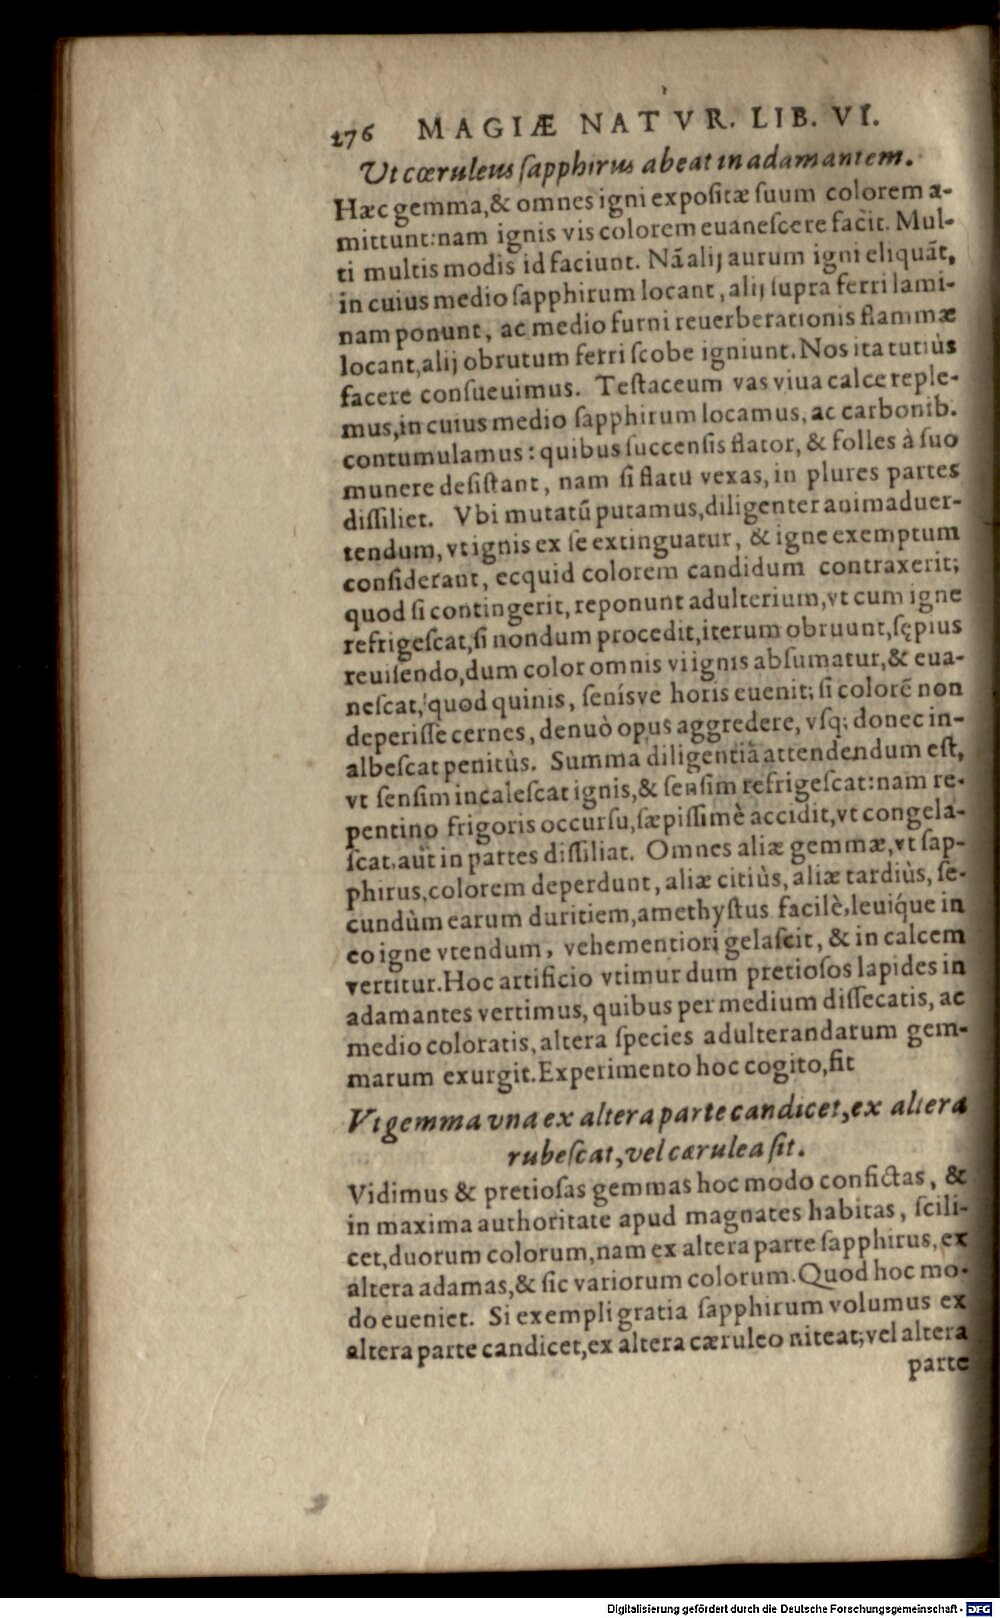 276 MAGIÆ NATVR. LIB. VI.
Ut cœruleus ſapphirus abeat in adamantem.
Hæc gemma,& omnes igni expoſitæ ſuum colorem a-
mittunt:nam ignis vis colorem euaneſcere facit. Mul-
ti multis modis id faciunt. Nã alij aurum igni eliquãt,
in cuius medio ſapphirum locant, alij ſupra ferri lami-
nam ponunt, ac medio furni reuerberationis flammæ
locant,alij obrutum ferri ſcobe igniunt. Nos ita tutiùs
facere conſueuimus. Teſtaceum vas viua calce reple-
mus,in cuius medio ſapphirum locamus, ac carbonib.
contumulamus: quibus ſuccenſis flator, & folles à ſuo
munere deſiſtant, nam ſi flatu vexas, in plures partes
diſſiliet. Vbi mutatũ putamus,diligenter animaduer-
tendum, vt ignis ex ſe extinguatur, & igne exemptum
conſiderant, ecquid colorem candidum contraxerit;
quod ſi contingerit, reponunt adulterium,vt cum igne
refrigeſcat,ſi nondum procedit,iterum obruunt,ſępius
reuiſendo,dum color omnis vi ignis abſumatur,& eua-
neſcat, quod quinis, ſenísve horis euenit; ſi colorẽ non
deperiſſe cernes, denuò opus aggredere, vſq; donec in-
albeſcat penitùs. Summa diligentiâ attendendum eſt,
vt ſenſim incaleſcat ignis,& ſenſim refrigeſcat:nam re-
pentino frigoris occurſu,ſæpiſſimè accidit,vt congela-
ſcat,aut in partes diſſiliat. Omnes aliæ gemmæ,vt ſap-
phirus,colorem deperdunt, aliæ citiùs, aliæ tardiùs, ſe-
cundùm earum duritiem,amethyſtus facilè,leuíque in
eo igne vtendum, vehementiori gelaſcit, & in calcem
vertitur.Hoc artificio vtimur dum pretioſos lapides in
adamantes vertimus, quibus per medium diſſecatis, ac
medio coloratis, altera ſpecies adulterandarum gem-
marum exurgit.Experimento hoc cogito,fit
Vt gemma vna ex altera parte candicet,ex altera
rubeſcat,vel cærulea ſit.
Vidimus & pretioſas gemmas hoc modo confictas, &
in maxima authoritate apud magnates habitas, ſcili-
cet,duorum colorum,nam ex altera parte ſapphirus, ex
altera adamas,& ſic variorum colorum.Quod hoc mo-
do eueniet. Si exempli gratia ſapphirum volumus ex
altera parte candicet,ex altera cæruleo niteat;vel altera
parte
Digitalisierung gefördert durch die Deutsche Forschungsgemeinschaft - DFG